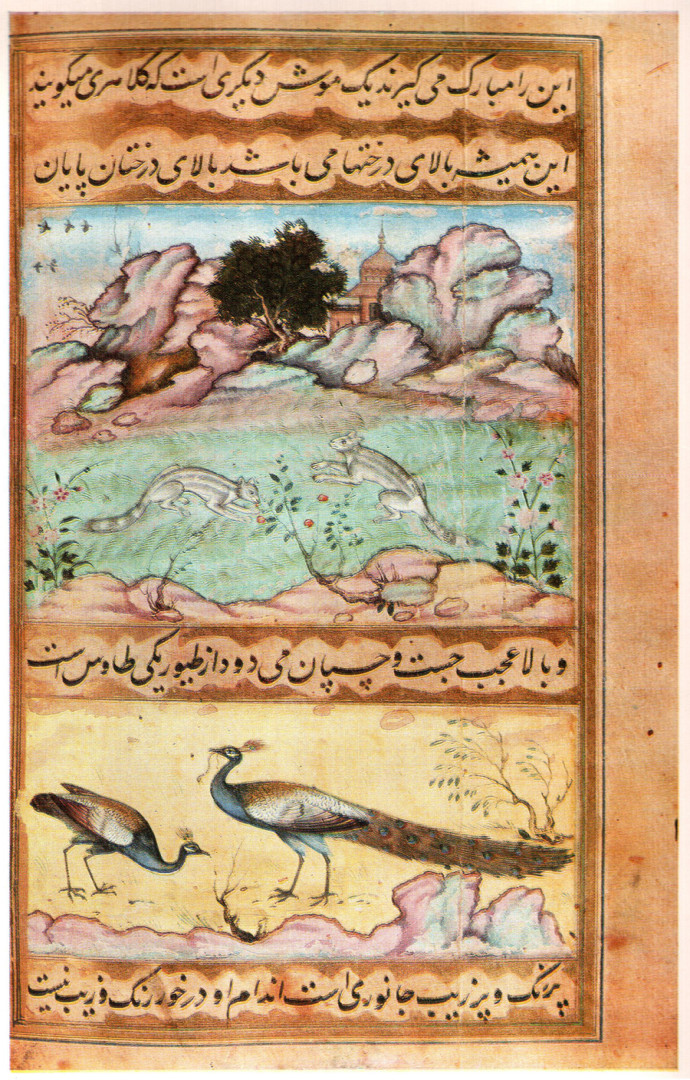 این را مبارک می کیرند یک موش دیکری است که کلاهری میکویند
این همیشه بالای درختها می باشد بالای درختان پایان
و بالا عجب جست و چسپان می دود از طیور یکی طاوس است
پر رنک و پر زیب جانوری است اندام او در خور رنک و زیب نیست